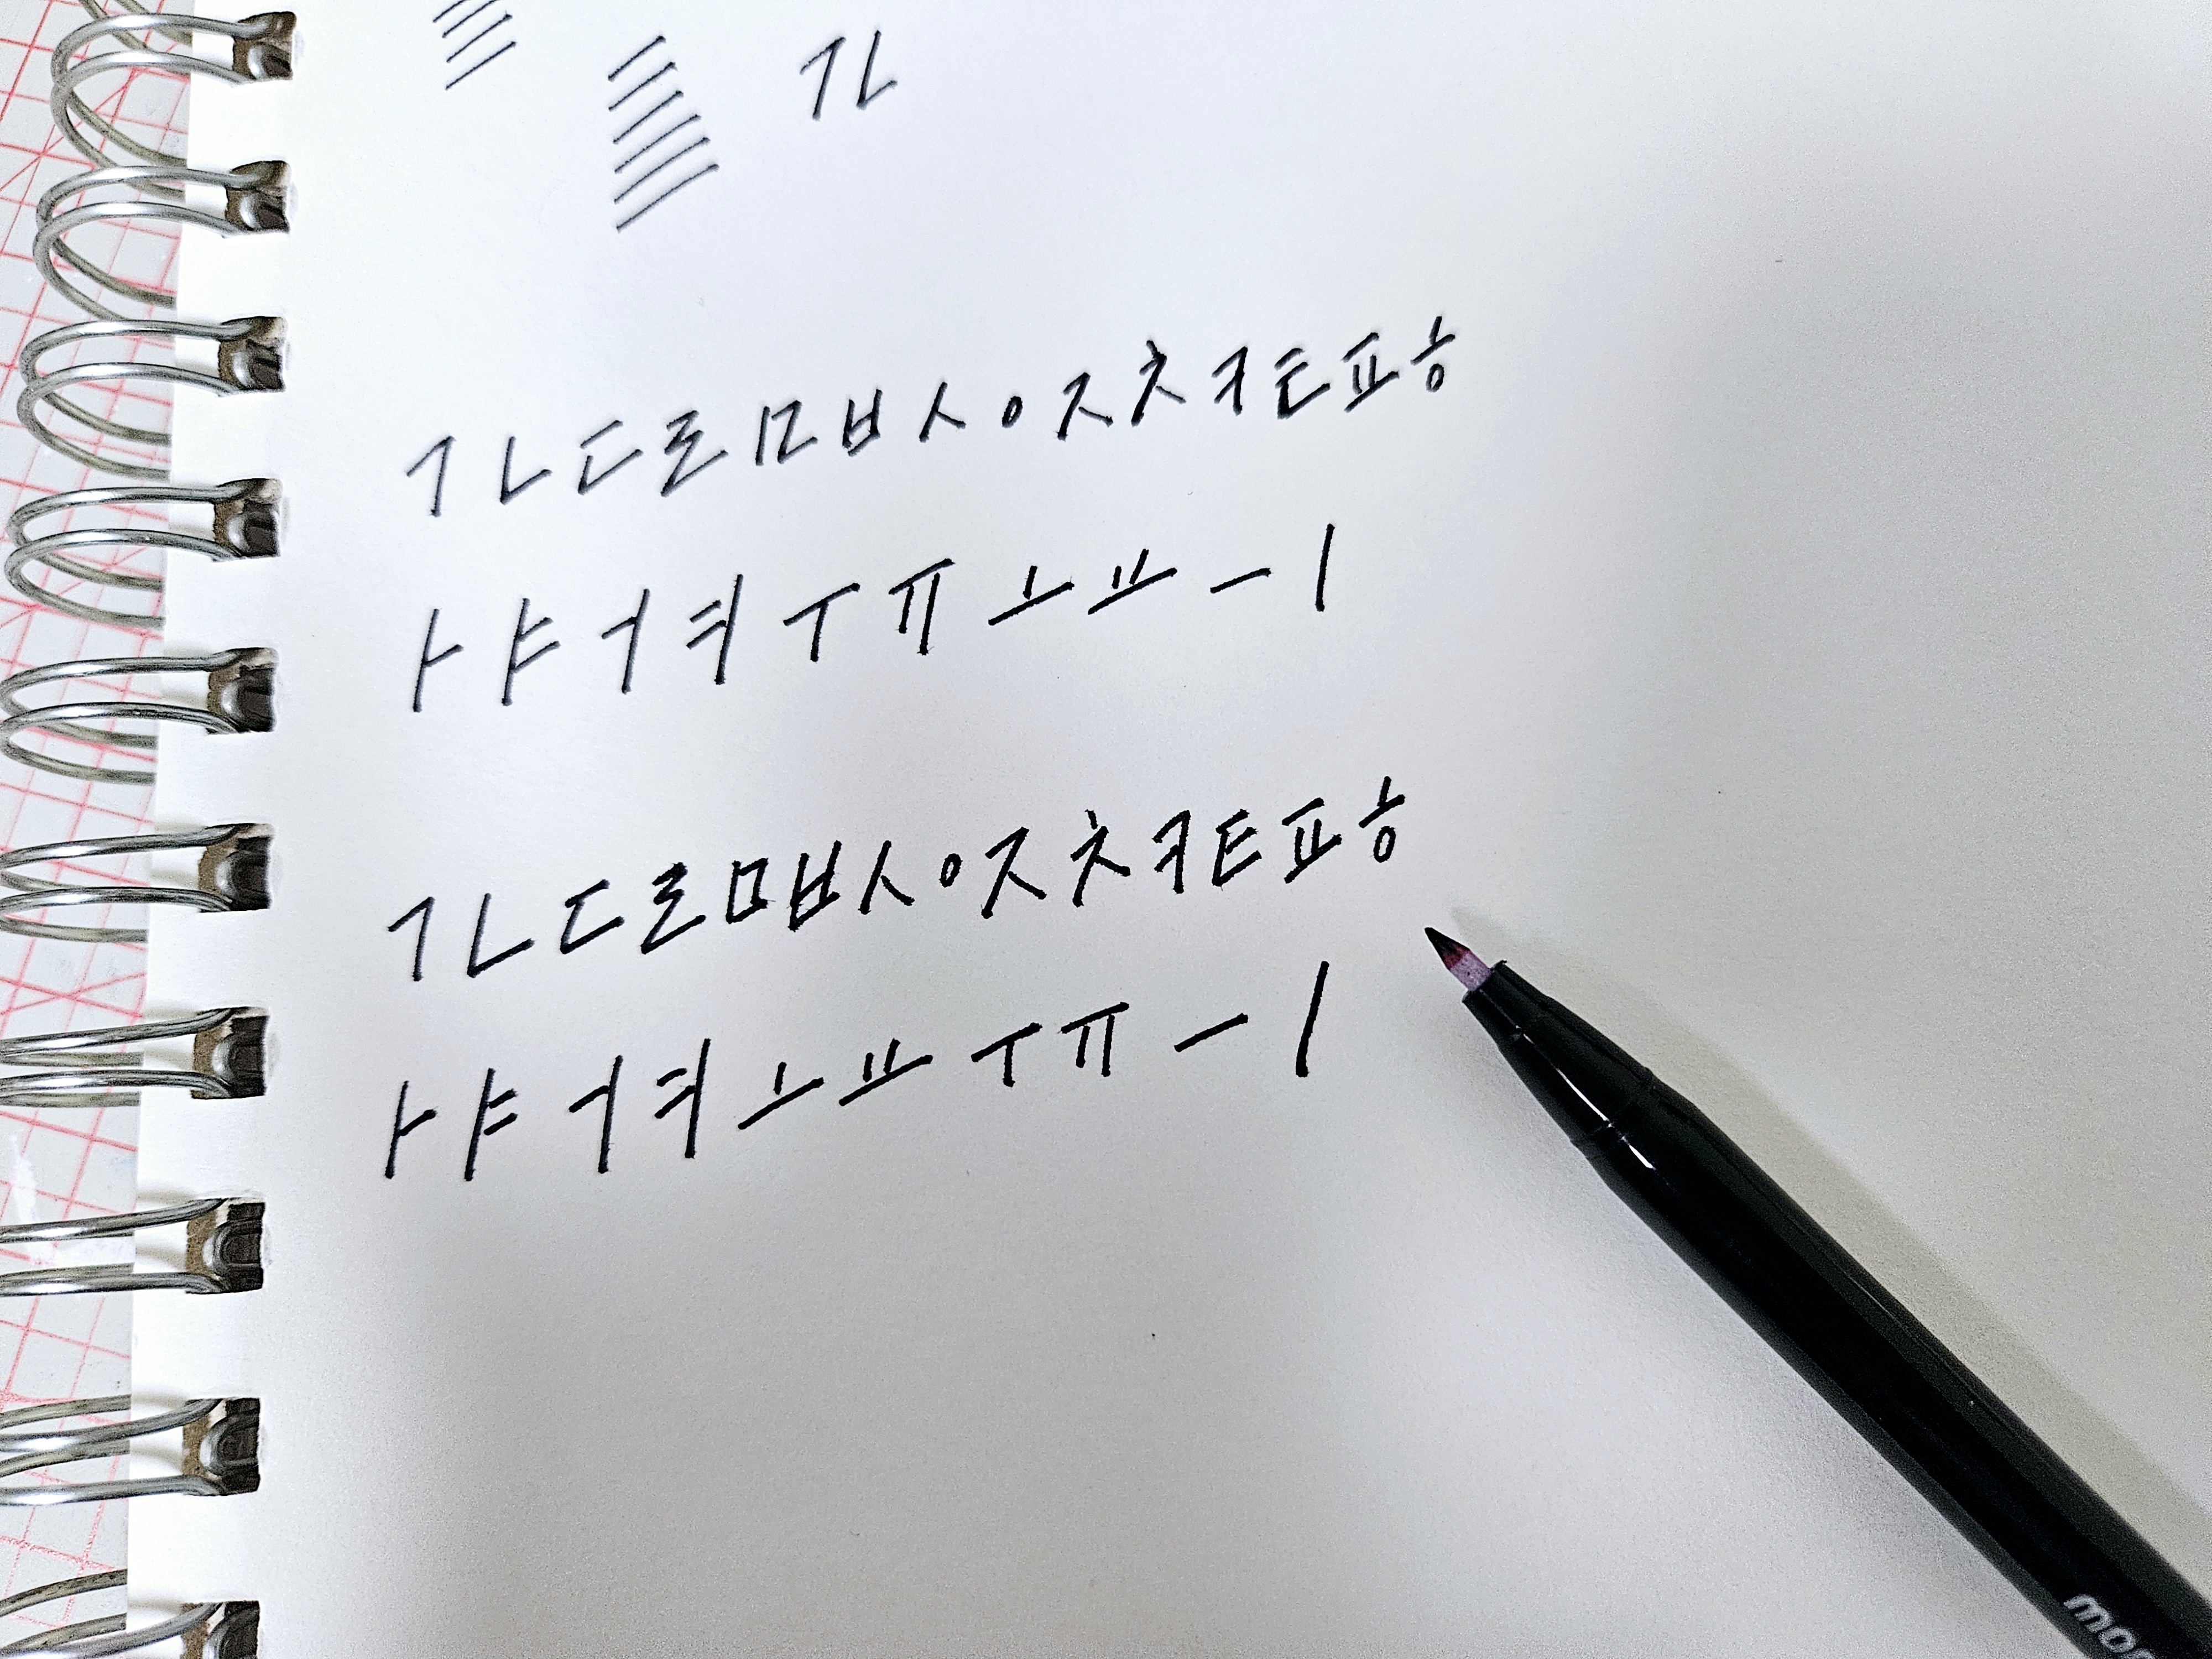 ㄱㄴ
ㄱㄴㄷㄹㅁㅂㅅㅇㅈㅊㅋㅌㅍㅎ
ㅏㅑㅓㅕㅜㅠㅗㅛㅡㅣ
ㄱㄴㄷㄹㅁㅂㅅㅇㅈㅊㅋㅌㅍㅎ
ㅏㅑㅓㅕㅗㅛㅜㅠㅡㅣ